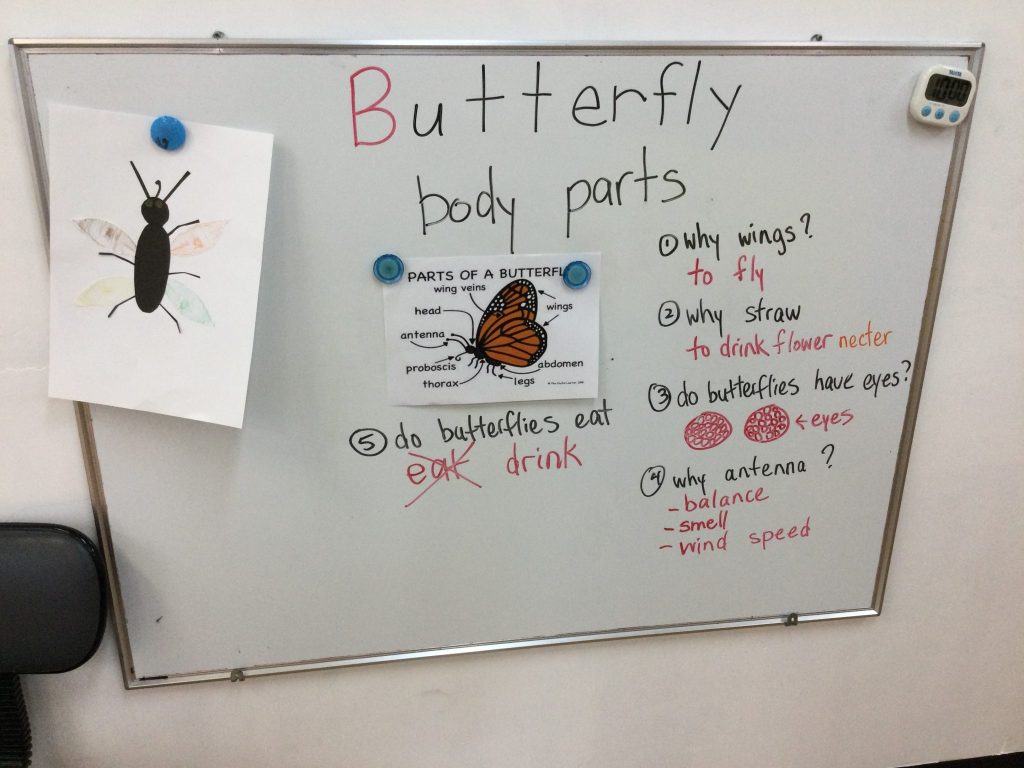 Butterfly
body parts
PARTS OF A BUTTERFL
wing veins
wings
head
antenna
proboscis
abdomen
thorax
legs
① why wings?
to fly
② why straw
to drink flower necter
③ do butterflies have eyes?
← eyes
④ why antenna?
- balance
- smell
- wind speed
⑤ do butterflies eat
eat drink